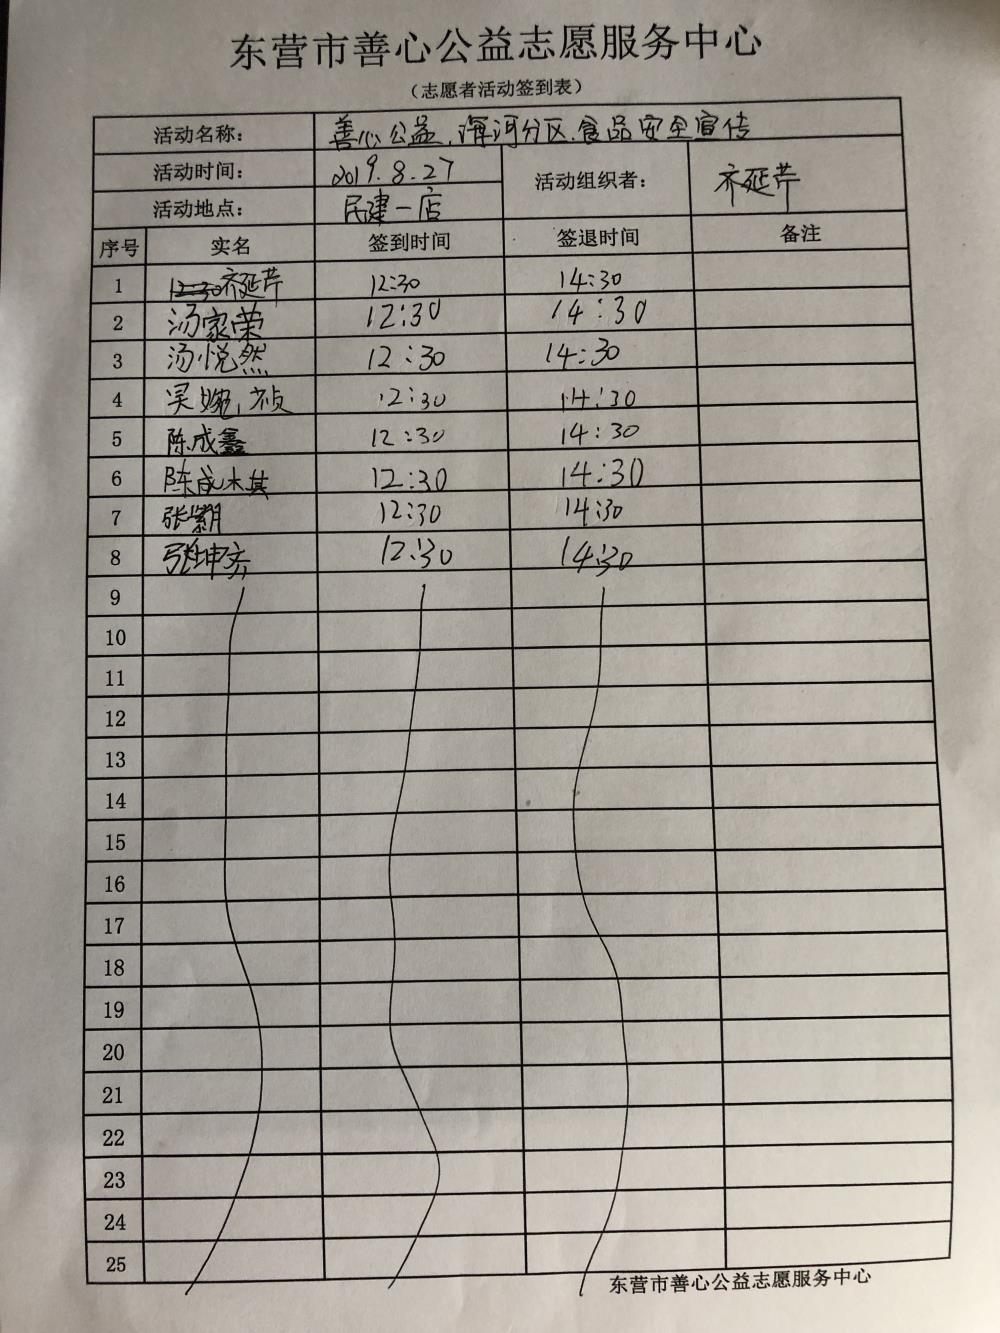 东营市善心公益志愿服务中心
（志愿者活动签到表）
活动名称： 善心公益，海河分区，食品安全宣传
活动时间： 2019.8.27 活动组织者： 齐延芹
活动地点： 民建一店
序号 实名 签到时间 签退时间 备注
1 齐延芹 12:30 14:30
2 汤家荣 12:30 14:30
3 汤悦然 12:30 14:30
4 吴婉 12:30 14:30
5 陈成鑫 12:30 14:30
6 陈成 12:30 14:30
7 张 12:30 14:30
8 张坤齐 12:30 14:30
9
10
11
12
13
14
15
16
17
18
19
20
21
22
23
24
25
东营市善心公益志愿服务中心